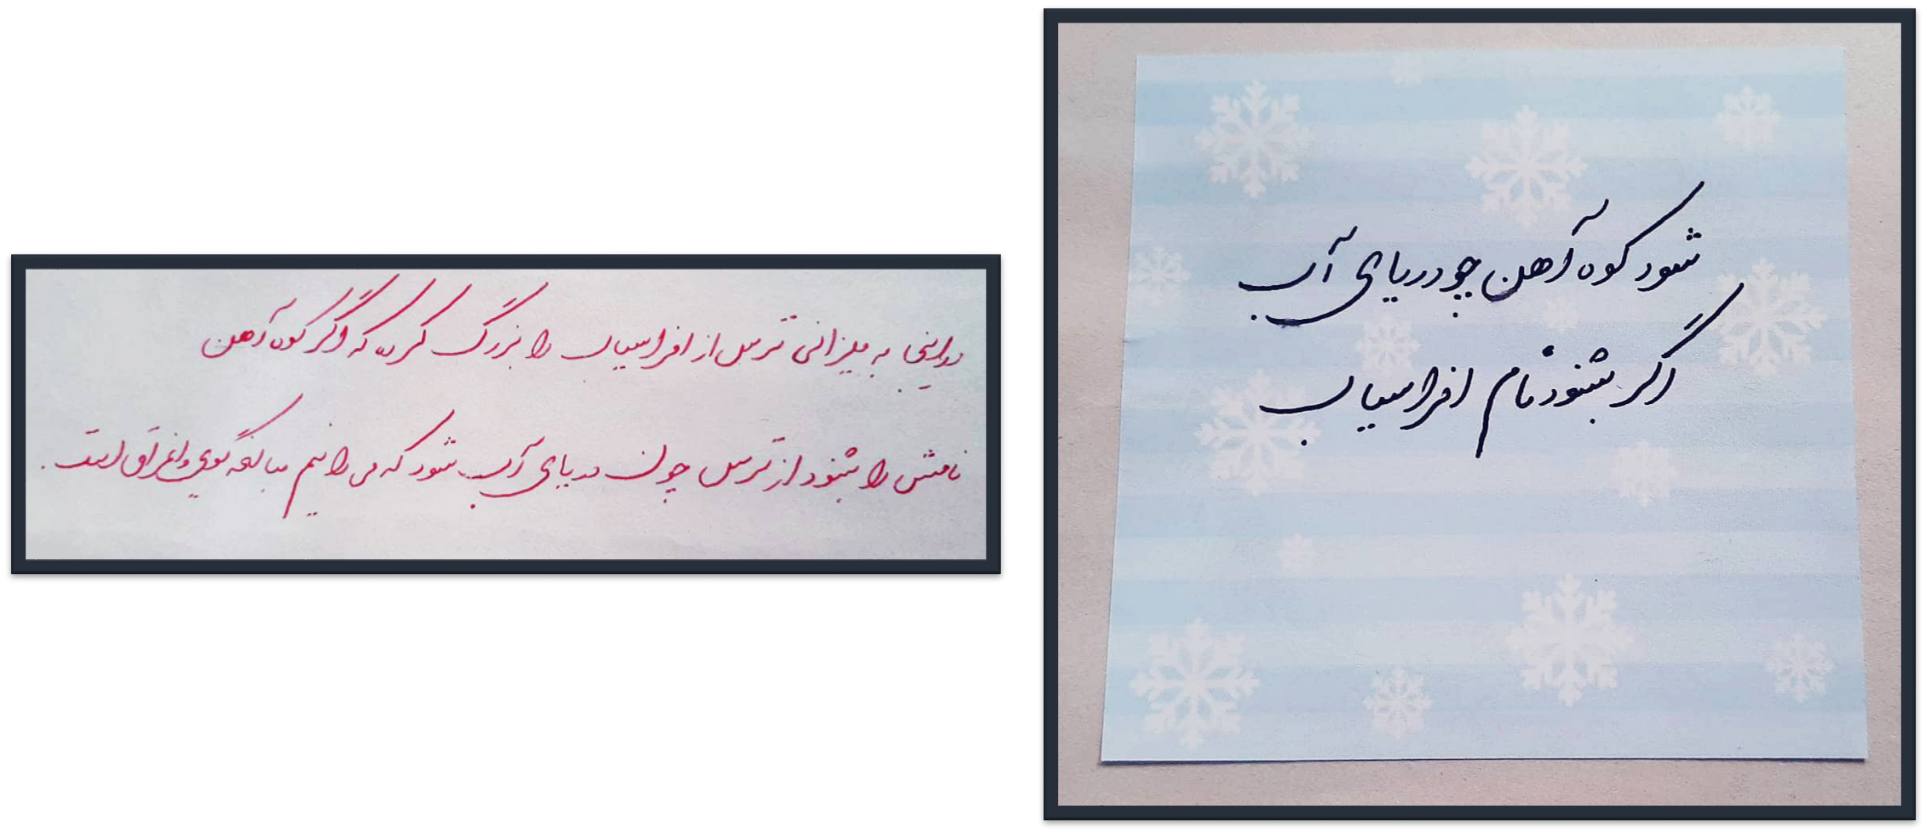 شود کوه آهن چو دریای آب
اگر بشنود نام افراسیاب
در اینجا به میزانی ترس از افراسیاب را بزرگ کرده که اگر کوه آهن
نامش را بشنود از ترس چون دریای آب شود که می دانیم مبالغه گویی و اغراق است.